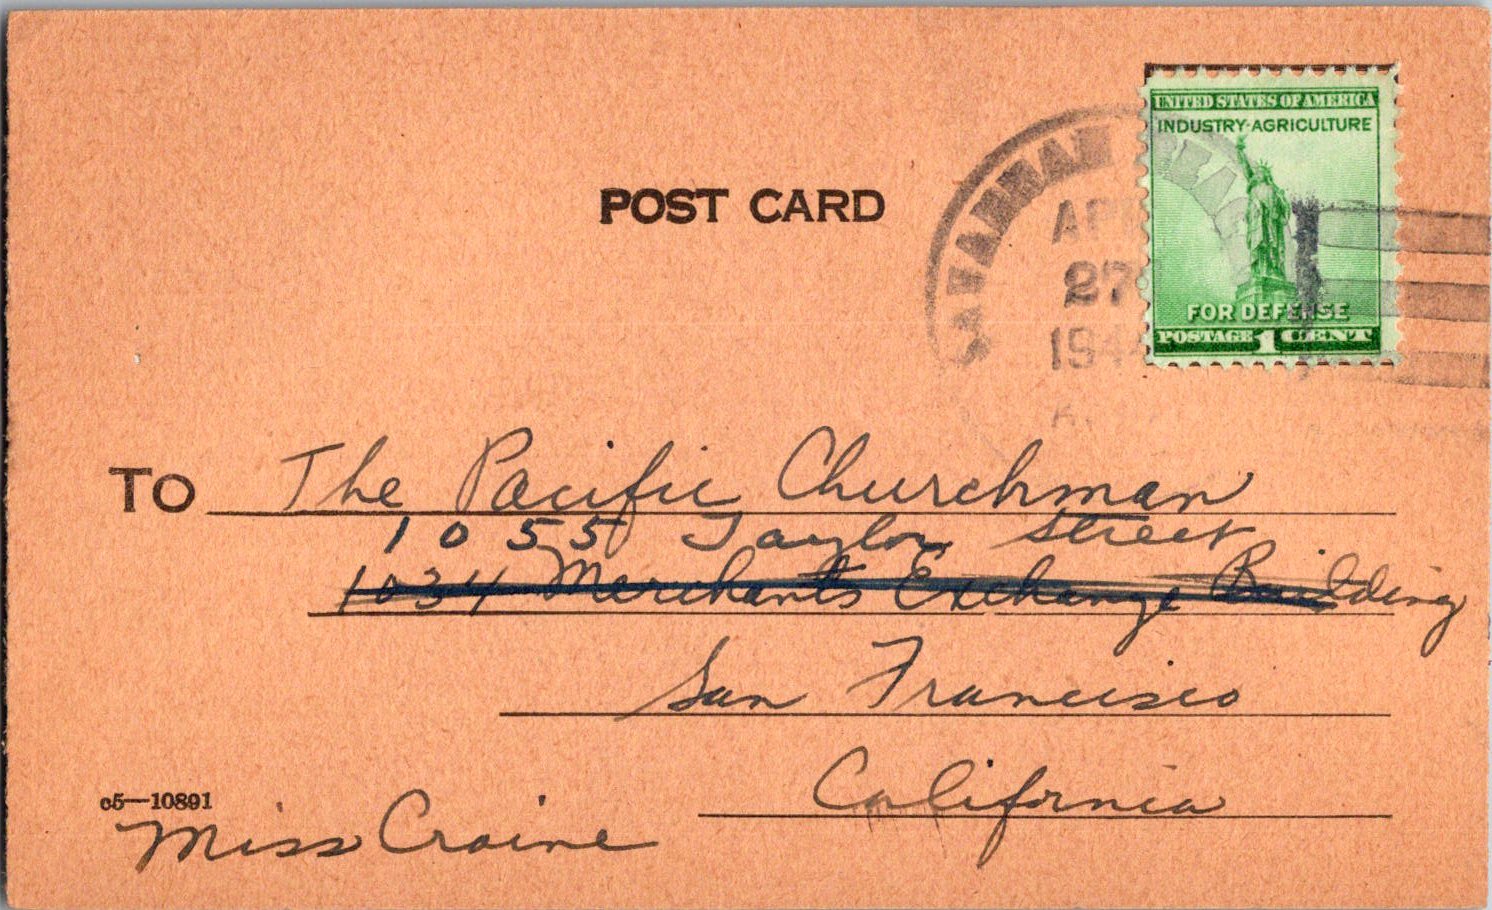 UNITED STATES OF AMERICA
INDUSTRY-AGRICULTURE
FOR DEFENSE
POSTAGE 1 CENT
SAVANNAH BEACH
APR
27
1944
POST CARD
TO The Pacific Churchman
1055 Taylor Street
1034 Merchants Exchange Building
San Francisco
California
c5—10891
Miss Craine